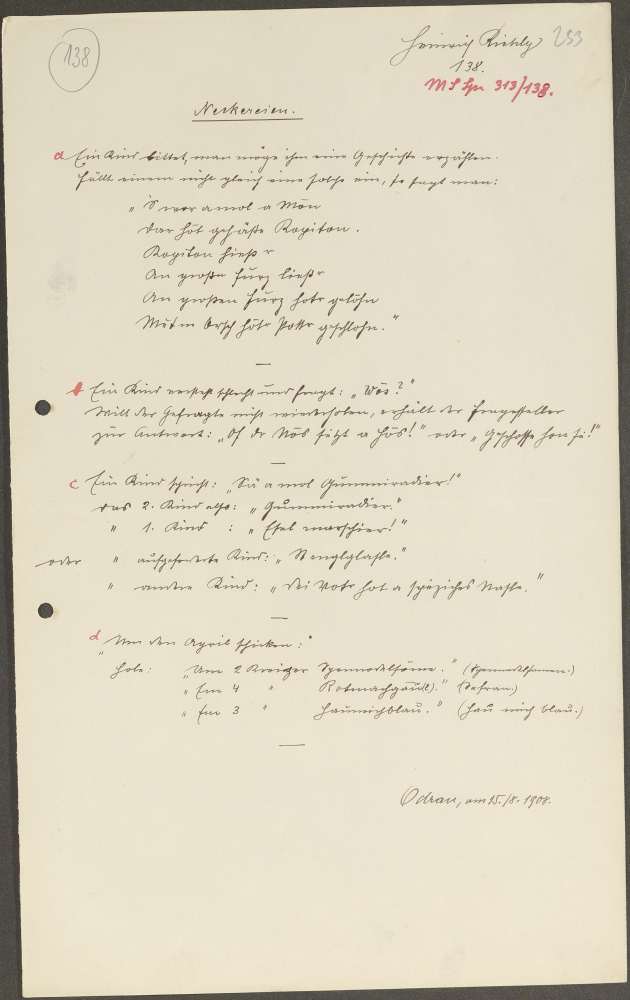 138
Heinrich Richly
253
138.
MS Spr 313/138.
Neckereien.
a Ein Kind bittet, man möge ihm eine Geschichte erzählen.
Fällt einem nicht gleich eine solche ein, so sagt man:
"'S wor amol a Mōn
Dar hot gehäße Kapiton.
Kapiton hieß r
An große Furz ließ r
An großen Furz hotr gelohn
Mit'm Orsch hotr geschlohn."
b Ein Kind versteht schlecht und fragt: "Wōs?"
Will der Gefragte nicht wiederholen, erhält der Fragesteller
zur Antwort: "Of dr Nōs sitzt a Hōs!" oder "Geschosse hon si!"
c Ein Kind spricht: "Sä a mol Gummiradier!"
das 2. Kind also: "Gummiradier."
" 1. Kind : "Esel marschier!"
oder " aufgeforderte Kind: "Stenglglasle."
" andre Kind: "Dei Votr hot a speziches Nasle."
d "In den April schicken:"
Hole: "Um 2 Kreizer Spennodelsōme." (Spennadelsamen.)
" Em 4 " (Safran)
" Em 3 " Haumichblau." (Hau mich blau.)
Odrau, am 15./8. 1908.